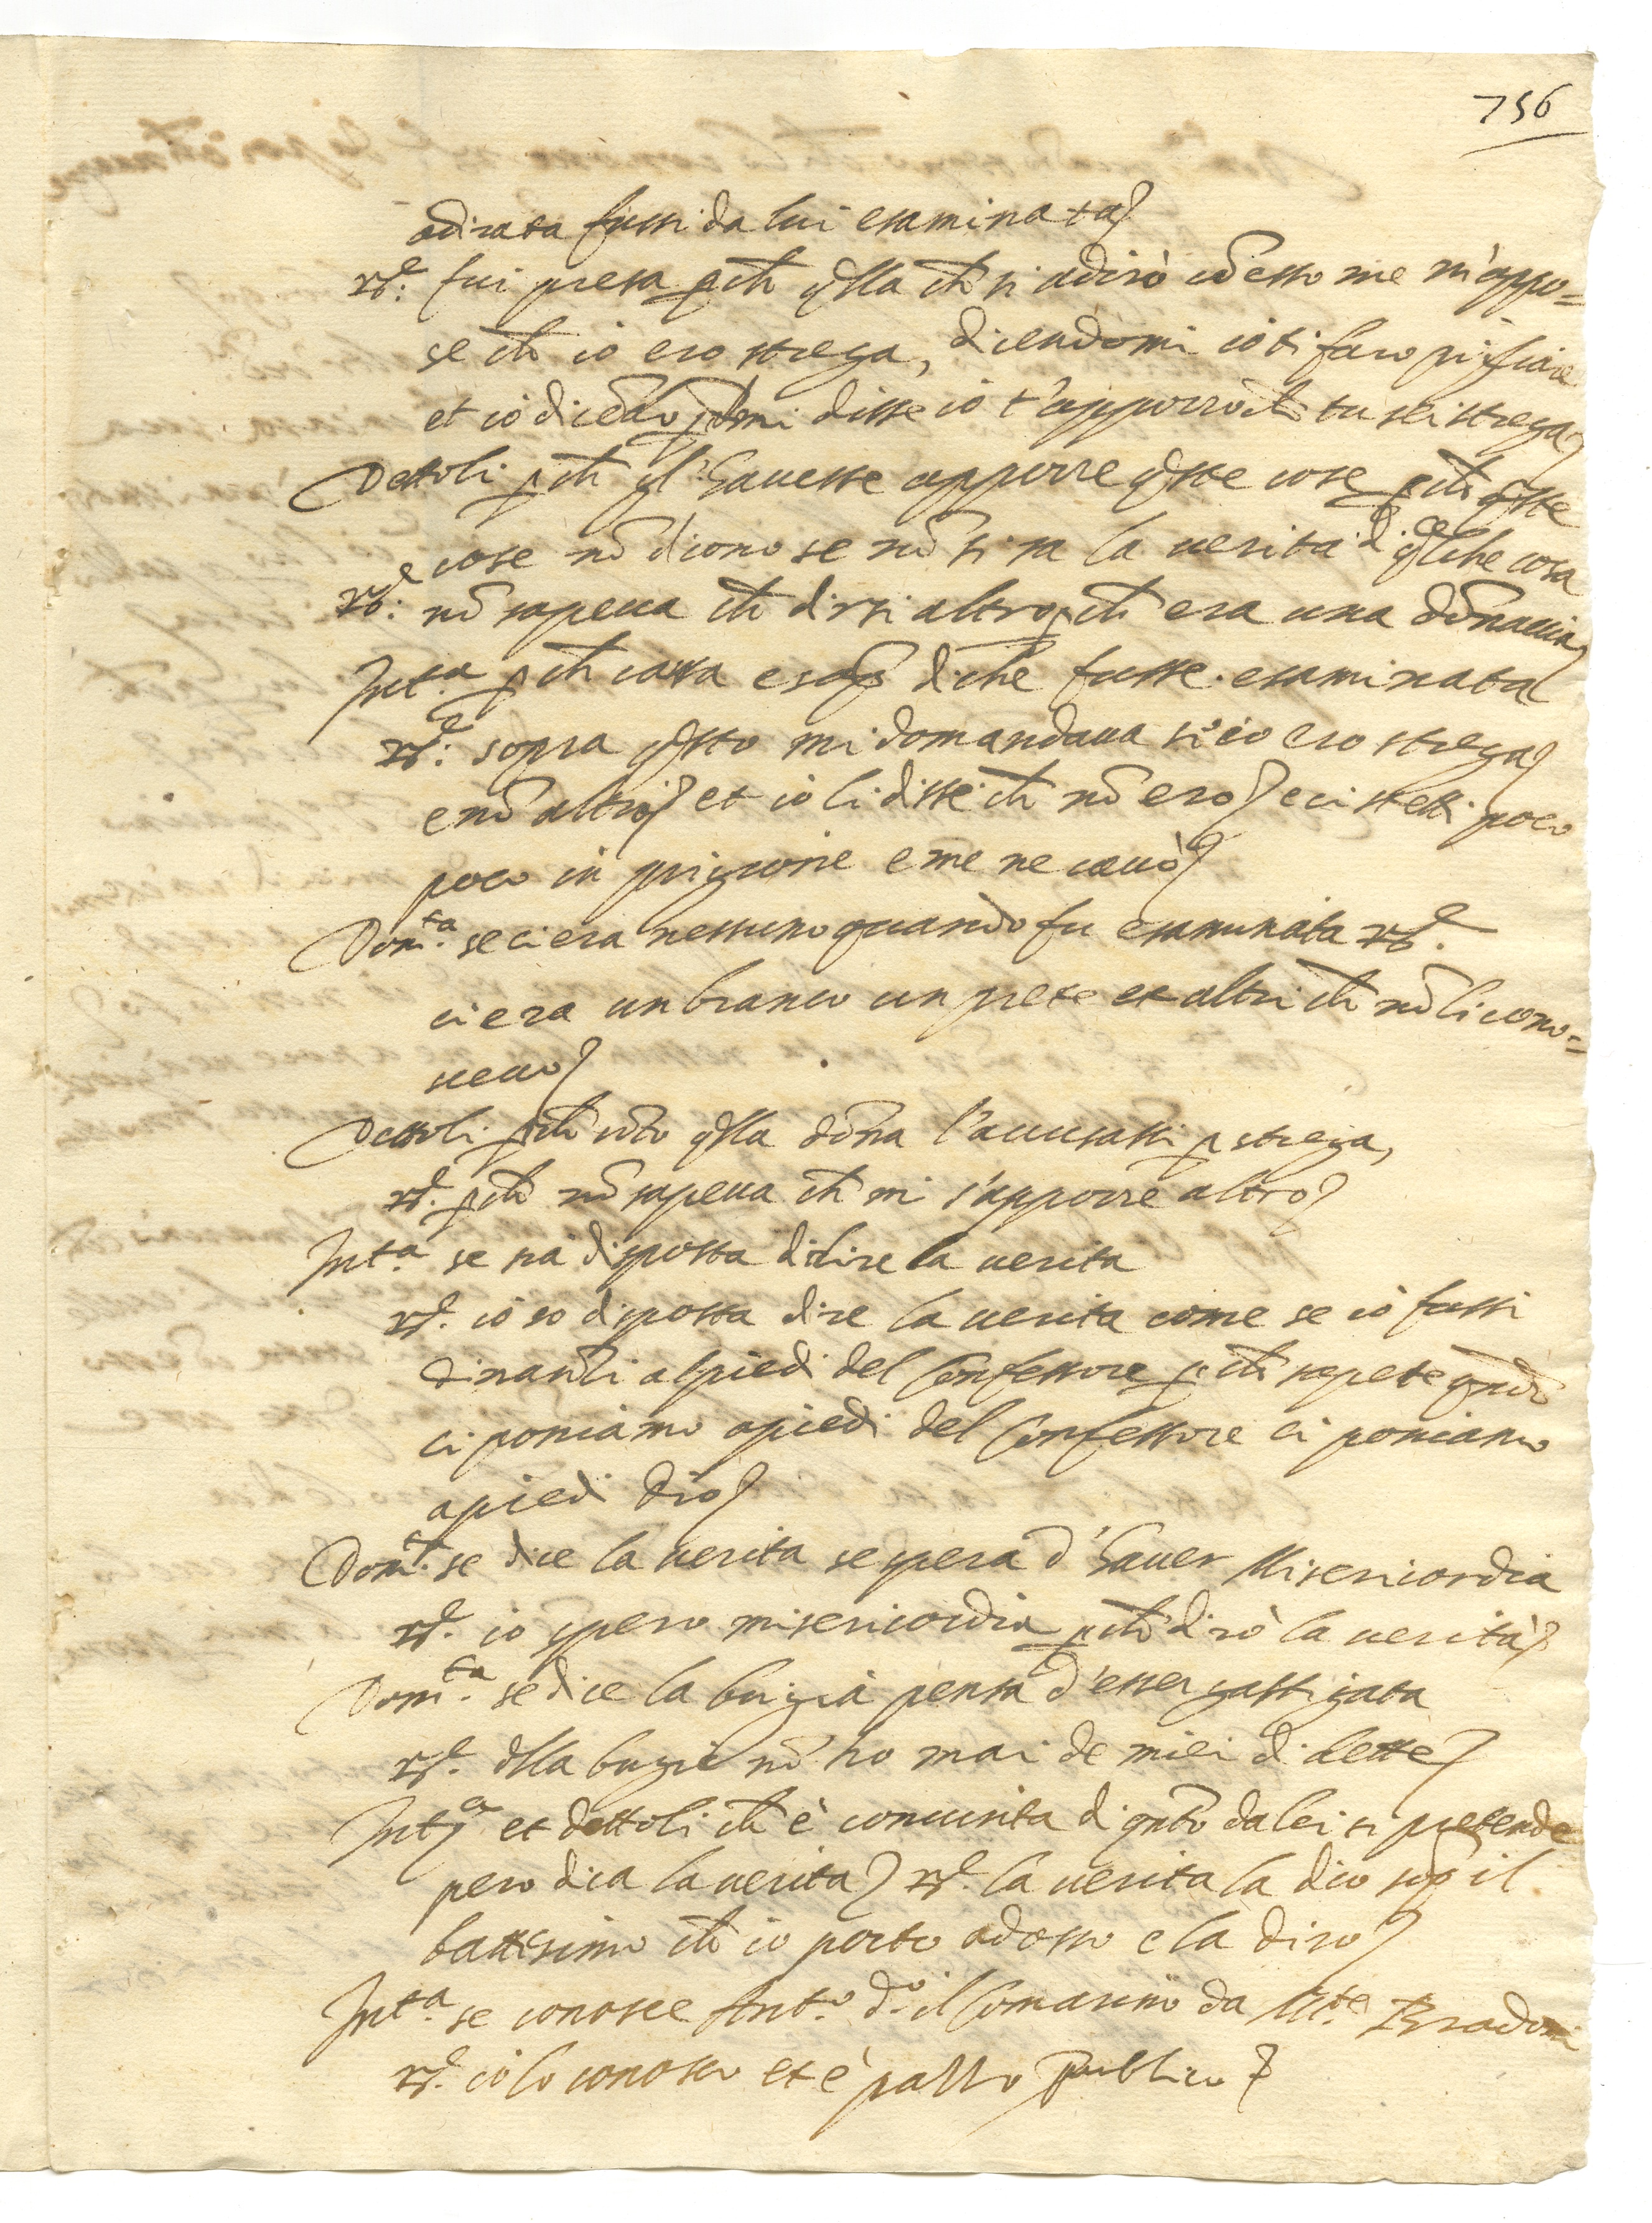 756
adirata fussi da lui esaminata
rˢᵉ: fui presa p̱ch̃ q̃lla ch̃ si adirò cõ esso me m'appo=
se ch̃ io ero strega, dicendomi io ti faro pigliare
et io dicẽdo mi disse io t'apporrò ch̃ tu sei strega
Dettoli p̱ch̃ gl'havesse apporre q̃ste cose p̱ch̃ q̃ste
cose nõ dicono se nõ si sa la verità di q̃lche cosa
rˢᵉ: nõ sapeva ch̃ dirsi altro p̱ch̃ era una dõnaccia
Intᵃ. p̱ch̃ causa e sop̃ di che fusse esaminata
rˢᵉ: sopra q̃sto mi domandava si io ero strega
e nõ altro et io li disse ch̃ nõ ero e ci stetti poco
poco in prigione e me ne cavò
Domᵗᵃ. se ci era nessuno quando fu esaminata rˢᵉ.
ci era un branco un prete et altri ch̃ nõ li cono=
scevo
Dettoli p̱ch̃ cõto q̃lla dõna l'accusassi p̱ strega,
rˢᵉ. p̱ch̃ nõ sapeva ch̃ mi s'apporre altro
Intᵃ. se sia disposta di dire la verita
rˢᵉ. io so disposta dire la verita come se io fussi
dinanzi a piedi del Confessore p̱ch̃ sapete q̃ndo
ci poniamo a piedi del Confessore ci poniamo
a piedi Dio
Domᵗ. se dice la verita se spera d'haver Misericordia
rˢᵉ. io spero misericordia p̱ch̃ dirò la verità
Domᵗᵃ. se dice la bugia pensa d'esser gastigata
rˢᵉ. d̃lla bugie nõ ho mai de miei dì dette
Intᵃ. et dettoli ch̃ è convinta di q̃nto da lei si pretende
pero dica la verita rˢᵉ. la verita la dico sop̃ il
battesimo ch̃ io porto adosso e la diro
Intᵃ. se conosce Antᵒ. dᵒ il Comarino da Mᵗᵉ
rˢᵉ. io lo conosco et è pazzo publico